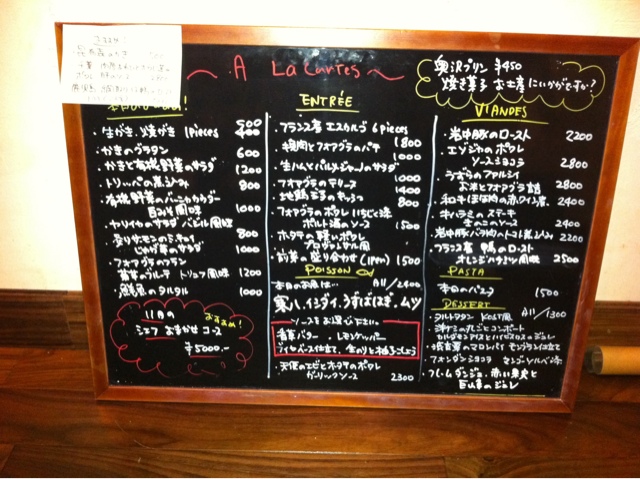 A La Cartes
奥沢プリン ¥450
焼き菓子 お土産にいかがですか?
・生がき、焼がき 1pieces 500
400
・かきのグラタン 600
・かきと有機野菜のサラダ 1200
・トリッパの煮込み 800
・有機野菜のバーニャカウダー
1000
・ヤリイカのサラダ バジル風味
800
・炙りサーモンのミキュイ
じゃが芋のサラダ 1000
・フォアグラのフラン
トリュフ風味 1200
・鮮魚のタルタル 1000
11月の
おすすめ!
シェフ おまかせ コース
¥5000.-
ENTRÉE
・フランス産 エスカルゴ 6pieces
1800
・鶏肉とフォアグラのパテ
1000
・生ハムとパルミジャーノのサラダ
1000
・フォアグラのテリーヌ 1400
・地鶏玉子のキッシュ 800
・フォアグラのポワレ いちじくと
ポルト酒のソース 1500
・ホタテの軽いポワレ
プロヴァンサル風
・前菜の盛り合わせ (1PM) 1500
POISSON
本日のお魚は… All/2400
寒ハ、イシダイ、うすばはぎ、ムツ
ソースをお選び下さい。
・香草バター ・レモンケッパー
・天使のエビとホタテのポワレ
ガーリックソース 2300
VIANDES
・岩中豚のロースト 2200
・エゾジカのポワレ
ソースショコラ 2800
・うずらのファルシィ
お米とフォアグラ詰 2800
・和牛ほほ肉の赤ワイン煮 2400
・牛ハラミのステーキ
きのこのソース 2400
・岩中豚バラ肉のトマト煮込み 2200
・フランス産 鴨のロースト
オレンジハチミツ風味 2500
PASTA
・本日のパスタ 1500
DESSERT
All/1300
・タルトタタン KOST風
・洋ナシ丸ごとコンポート
カルダモンアイスとハイビスカスのジュレ
・埼玉産のマロンパイ モンブラン仕立
・フォンダンショコラ マンゴソルベ添
・クレームダンジュ、赤い果実と
巨峰のジュレ